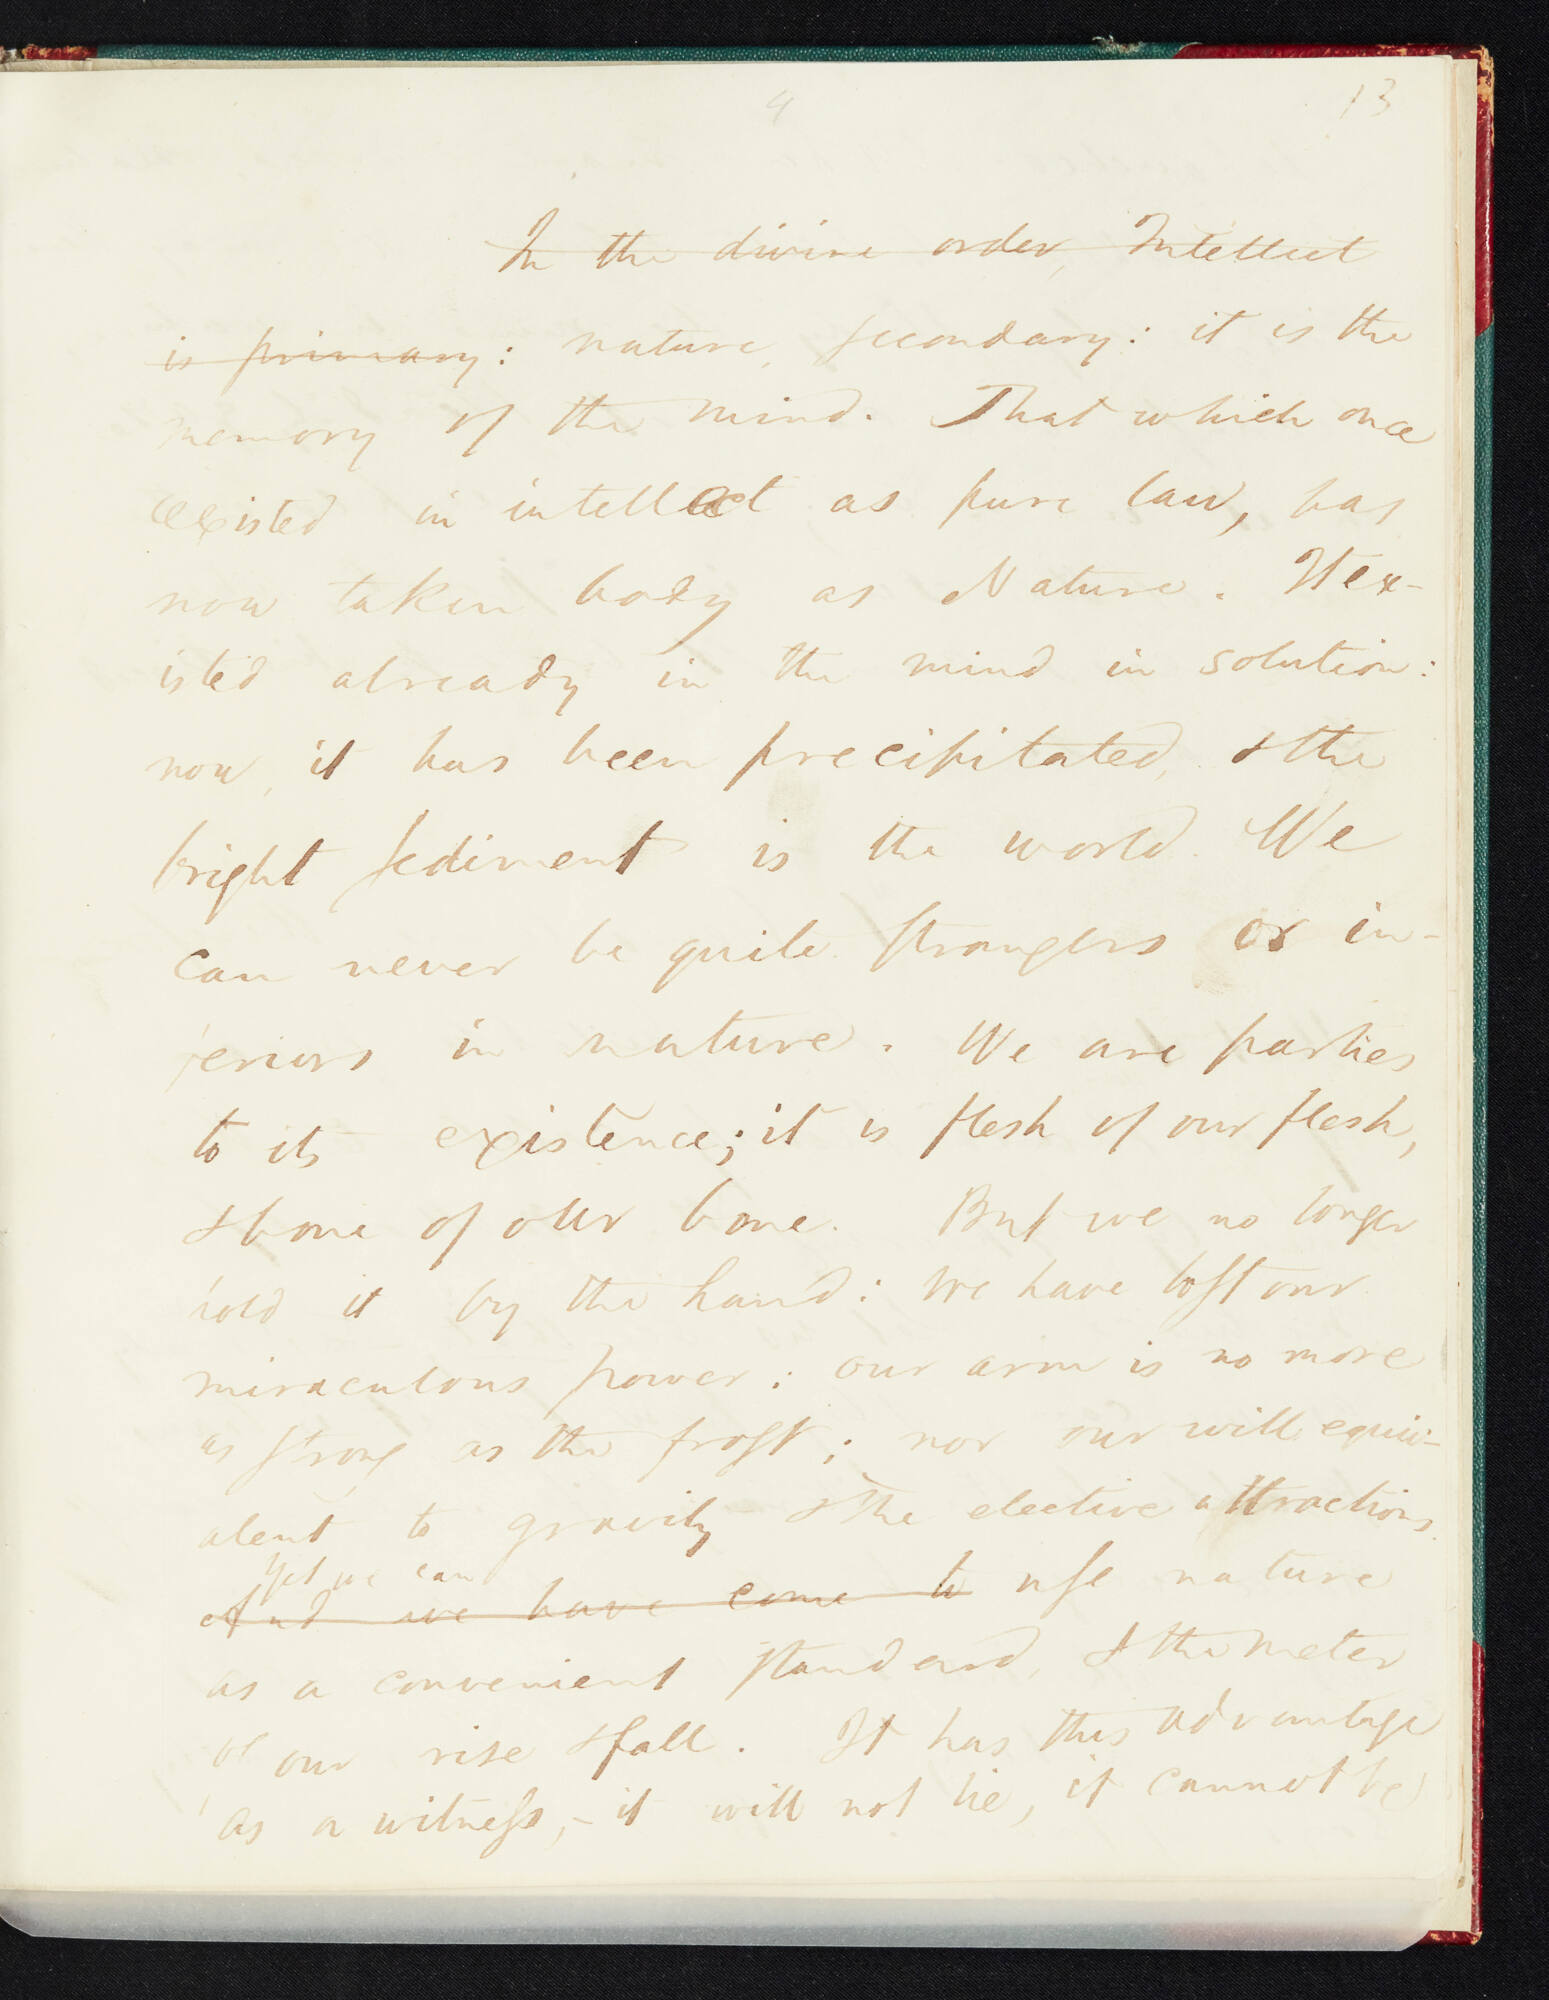 4
13
In the divine order, Intellect
is primary: nature, secondary: it is the
memory of the mind. That which once
existed in intellect as pure law, has
now taken body as Nature. It ex-
isted already in the mind in solution:
now, it has been precipitated, & the
bright sediment is the world. We
can never be quite strangers or in-
feriors in nature. We are parties
to its existence; it is flesh of our flesh,
& bone of our bone. But we no longer
hold it by the hand: we have lost our
miraculous power: our arm is no more
as strong as the frost; nor our will equiv-
alent to gravity & the elective attractions.
Yet we can
And we have come to use nature
as a convenient standard, & the meter
of our rise & fall. It has this advantage
as a witness, - it will not lie, it cannot be